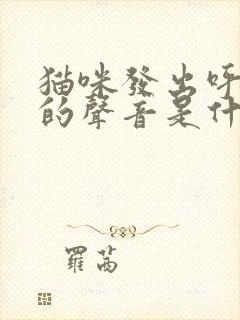 猫咪發出呼
的聲音是什
羅茜